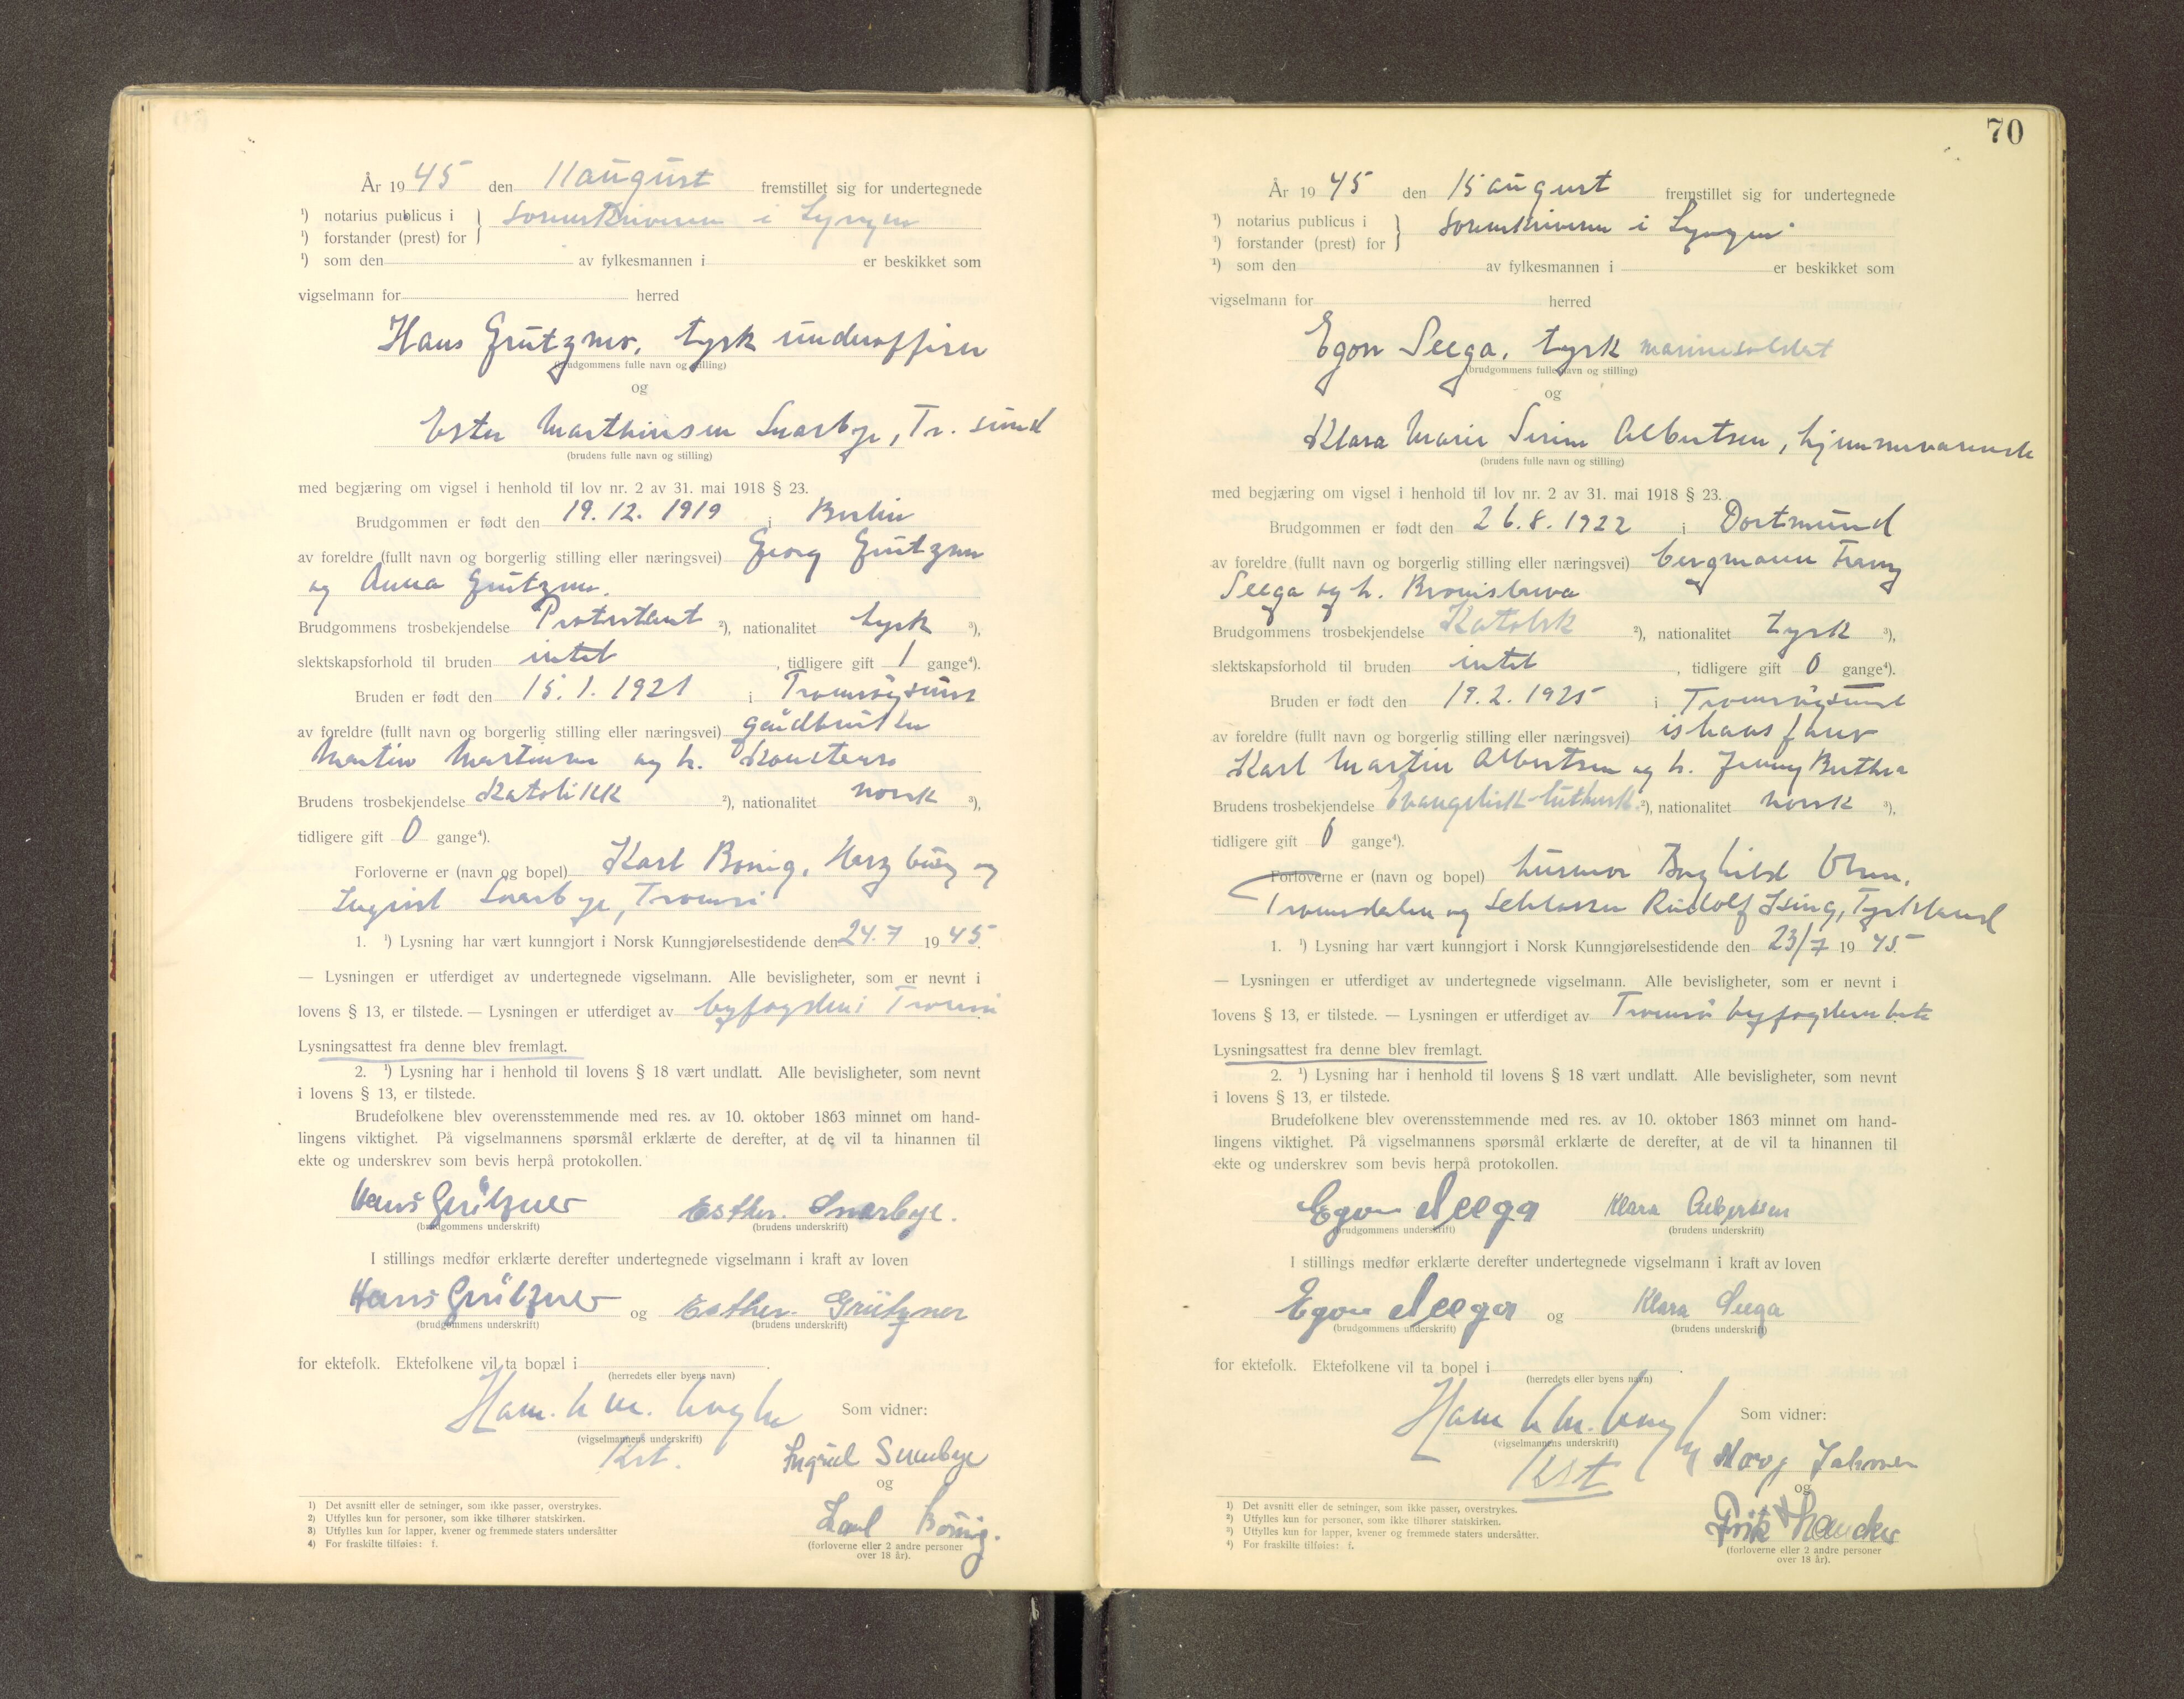 År 1945 den 11 august fremstillet sig for undertegnede
¹) notarius publicus i } sorenskriveren i Lyngen
¹) forstander (prest) for
¹) som den av fylkesmannen i er beskikket som
vigselmann for herred
Hans Grützner, tysk underoffiser
(brudgommens fulle navn og stilling)
og
Ester Marthinsen Snarbye, Tr. sund
(brudens fulle navn og stilling)
med begjæring om vigsel i henhold til lov nr. 2 av 31. mai 1918 § 23.
Brudgommen er født den 19.12.1919 i Berlin
av foreldre (fullt navn og borgerlig stilling eller næringsvei) Georg Grützner
og Anna Grützner.
Brudgommens trosbekjendelse Protestant ²), nationalitet tysk ³),
slektskapsforhold til bruden intet, tidligere gift 1 gange⁴).
Bruden er født den 15.1.1921 i Tromsøysund
av foreldre (fullt navn og borgerlig stilling eller næringsvei) gårdbruker
Martin Martinsen og h. Konstanse
Brudens trosbekjendelse Katolikk ²), nationalitet norsk ³),
tidligere gift 0 gange⁴).
Forloverne er (navn og bopel) Karl Bönig, Harzburg og
Ingrid Snarbye, Tromsö
1. ¹) Lysning har vært kunngjort i Norsk Kunngjørelsestidende den 24.7 1945.
— Lysningen er utferdiget av undertegnede vigselmann. Alle bevisligheter, som er nevnt i
lovens § 13, er tilstede. — Lysningen er utferdiget av byfogden i Tromsö
Lysningsattest fra denne blev fremlagt.
2. ¹) Lysning har i henhold til lovens § 18 vært undlatt. Alle bevisligheter, som nevnt
i lovens § 13, er tilstede.
Brudefolkene blev overensstemmende med res. av 10. oktober 1863 minnet om hand-
lingens viktighet. På vigselmannens spørsmål erklærte de derefter, at de vil ta hinannen til
ekte og underskrev som bevis herpå protokollen.
Hans Grützner Esther. Snarbye.
(brudgommens underskrift) (brudens underskrift)
I stillings medfør erklærte derefter undertegnede vigselmann i kraft av loven
Hans Grützner og Esther. Grützner
(brudgommens underskrift) (brudens underskrift)
for ektefolk. Ektefolkene vil ta bopæl i .
(herredets eller byens navn)
Som vidner:
(vigselmannens underskrift)
Kst.
Ingrid Snarbye
og
Karl Bönig.
(forloverne eller 2 andre personer
over 18 år).
1) Det avsnitt eller de setninger, som ikke passer, overstrykes.
2) Utfylles kun for personer, som ikke tilhører statskirken.
3) Utfylles kun for lapper, kvener og fremmede staters undersåtter
4) For fraskilte tilføies: f.
70
År 1945 den 15 august fremstillet sig for undertegnede
¹) notarius publicus i } sorenskriveren i Lyngen
¹) forstander (prest) for
¹) som den av fylkesmannen i er beskikket som
vigselmann for herred
Egon Seega, tysk marinesoldat
(brudgommens fulle navn og stilling)
og
Klara Marie Serine Albertsen, hjemmeværende
(brudens fulle navn og stilling)
med begjæring om vigsel i henhold til lov nr. 2 av 31. mai 1918 § 23.
Brudgommen er født den 26.8.1922 i Dortmund
av foreldre (fullt navn og borgerlig stilling eller næringsvei) bergmann Franz
Seega og h. Bronislawa
Brudgommens trosbekjendelse Katolsk ²), nationalitet tysk ³),
slektskapsforhold til bruden intet, tidligere gift 0 gange⁴).
Bruden er født den 19.2.1925 i Tromsøysund
av foreldre (fullt navn og borgerlig stilling eller næringsvei) ishavsfarer
Karl Martin Albertsen og h. Jenny Berthea
Brudens trosbekjendelse Evangelisk-luthersk ²), nationalitet norsk ³),
tidligere gift 0 gange⁴).
Forloverne er (navn og bopel) husmor Borghild Olsen,
Tromsdalen og Schlosser Rudolf Ising, Tyskland
1. ¹) Lysning har vært kunngjort i Norsk Kunngjørelsestidende den 23/7 1945.
— Lysningen er utferdiget av undertegnede vigselmann. Alle bevisligheter, som er nevnt i
lovens § 13, er tilstede. — Lysningen er utferdiget av Tromsö byfogdembete
Lysningsattest fra denne blev fremlagt.
2. ¹) Lysning har i henhold til lovens § 18 vært undlatt. Alle bevisligheter, som nevnt
i lovens § 13, er tilstede.
Brudefolkene blev overensstemmende med res. av 10. oktober 1863 minnet om hand-
lingens viktighet. På vigselmannens spørsmål erklærte de derefter, at de vil ta hinannen til
ekte og underskrev som bevis herpå protokollen.
Egon Seega Klara Albertsen
(brudgommens underskrift) (brudens underskrift)
I stillings medfør erklærte derefter undertegnede vigselmann i kraft av loven
Egon Seega og Klara Seega
(brudgommens underskrift) (brudens underskrift)
for ektefolk. Ektefolkene vil ta bopel i .
(herredets eller byens navn)
Som vidner:
(vigselmannens underskrift)
Kst
og
(forloverne eller 2 andre personer
over 18 år).
1) Det avsnitt eller de setninger, som ikke passer, overstrykes.
2) Utfylles kun for personer, som ikke tilhører statskirken.
3) Utfylles kun for lapper, kvener og fremmede staters undersåtter.
4) For fraskilte tilføies: f.